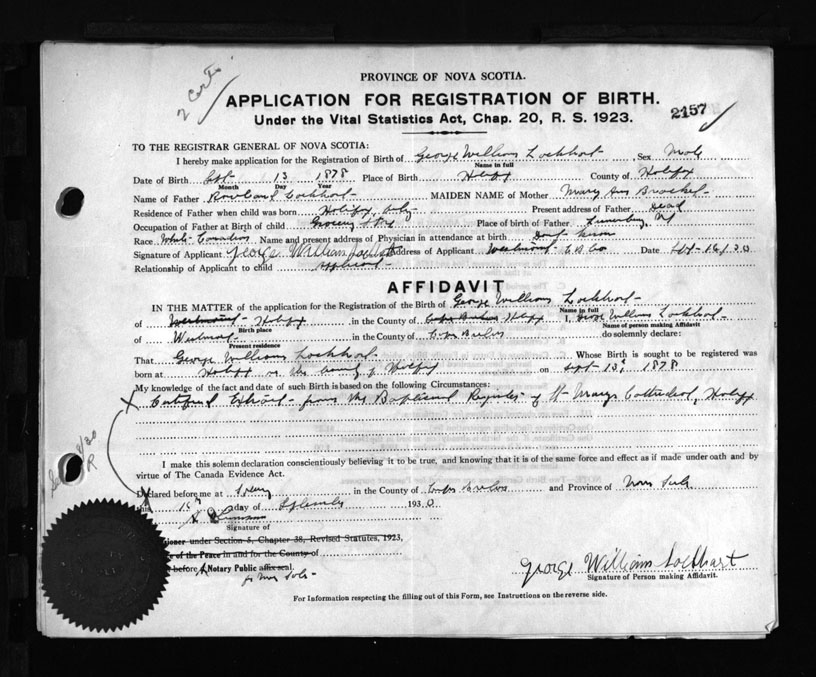 2 Certs.
PROVINCE OF NOVA SCOTIA.
2157
APPLICATION FOR REGISTRATION OF BIRTH.
Under the Vital Statistics Act, Chap. 20, R. S. 1923.
TO THE REGISTRAR GENERAL OF NOVA SCOTIA:
I hereby make application for the Registration of Birth of George William Lockhart Sex Male
Name in full
Date of Birth Sept 13 1878 Place of Birth Halifax County of Halifax
Month Day Year
Name of Father Rowland Lockhart MAIDEN NAME of Mother Mary Ann
Residence of Father when child was born Halifax, City Present address of Father Dead
Occupation of Father at Birth of child Grocery Place of birth of Father Lunenburg, Co
Race White Canadian Name and present address of Physician in attendance at birth Don't know
Signature of Applicant George William Lockhart Address of Applicant Westmount C B Co Date Sept 16/30
Relationship of Applicant to child applicant
AFFIDAVIT
IN THE MATTER of the application for the Registration of the Birth of George William Lockhart
Name in full
of Westmount Halifax in the County of Cape Breton Hlfx I, George William Lockhart
Birth place Name of person making Affidavit
of Westmount in the County of Cape Breton do solemnly declare:
Present residence
That George William Lockhart Whose Birth is sought to be registered was
born at Halifax in the County of Halifax on Sept 13th 1878
My knowledge of the fact and date of such Birth is based on the following Circumstances:
X Certified Extract from the Baptismal Register of St Marys Cathedral, Halifax
I make this solemn declaration conscientiously believing it to be true, and knowing that it is of the same force and effect as if made under oath and by
virtue of The Canada Evidence Act.
Declared before me at Sydney in the County of Cape Breton and Province of Nova Scotia
this 16th day of September 1930
Signature of
ioner under Section 5, Chapter 38, Revised Statutes, 1923,
of the Peace in and for the County of
before Notary Public affix seal.
for Nova Scotia
George William Lockhart
Signature of Person making Affidavit.
For Information respecting the filling out of this Form, see Instructions on the reverse side.